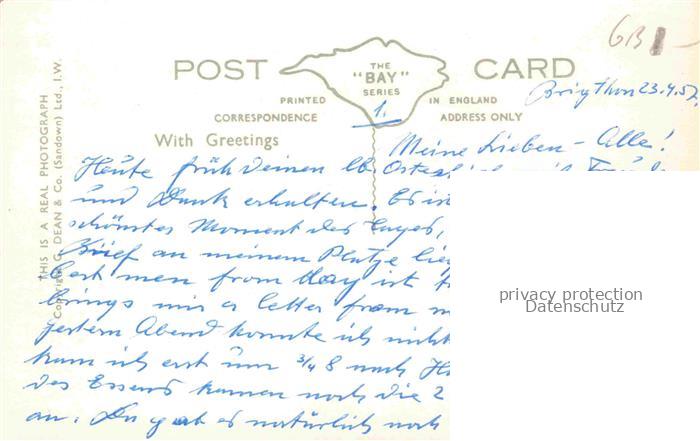 6B
POST CARD
THE
"BAY"
SERIES
PRINTED IN ENGLAND
CORRESPONDENCE ADDRESS ONLY
With Greetings
THIS IS A REAL PHOTOGRAPH
Copyright G. DEAN & Co. (Sandown) Ltd., I.W.
Brigthon 23.4.57.
1.
Meine Lieben - Alle!
Heute früh deinen lb
und Dank erhalten. Es is
schönster Moment des Tages,
Brief an meinem Platze lie
Best men from May ist
brings mir a letter from m
gestern Abend konnte ich nicht
kam ich erst um 3/4 8 nach H
des Essens kamen noch die 2
an. Da gab es natürlich noch
privacy protection
Datenschutz